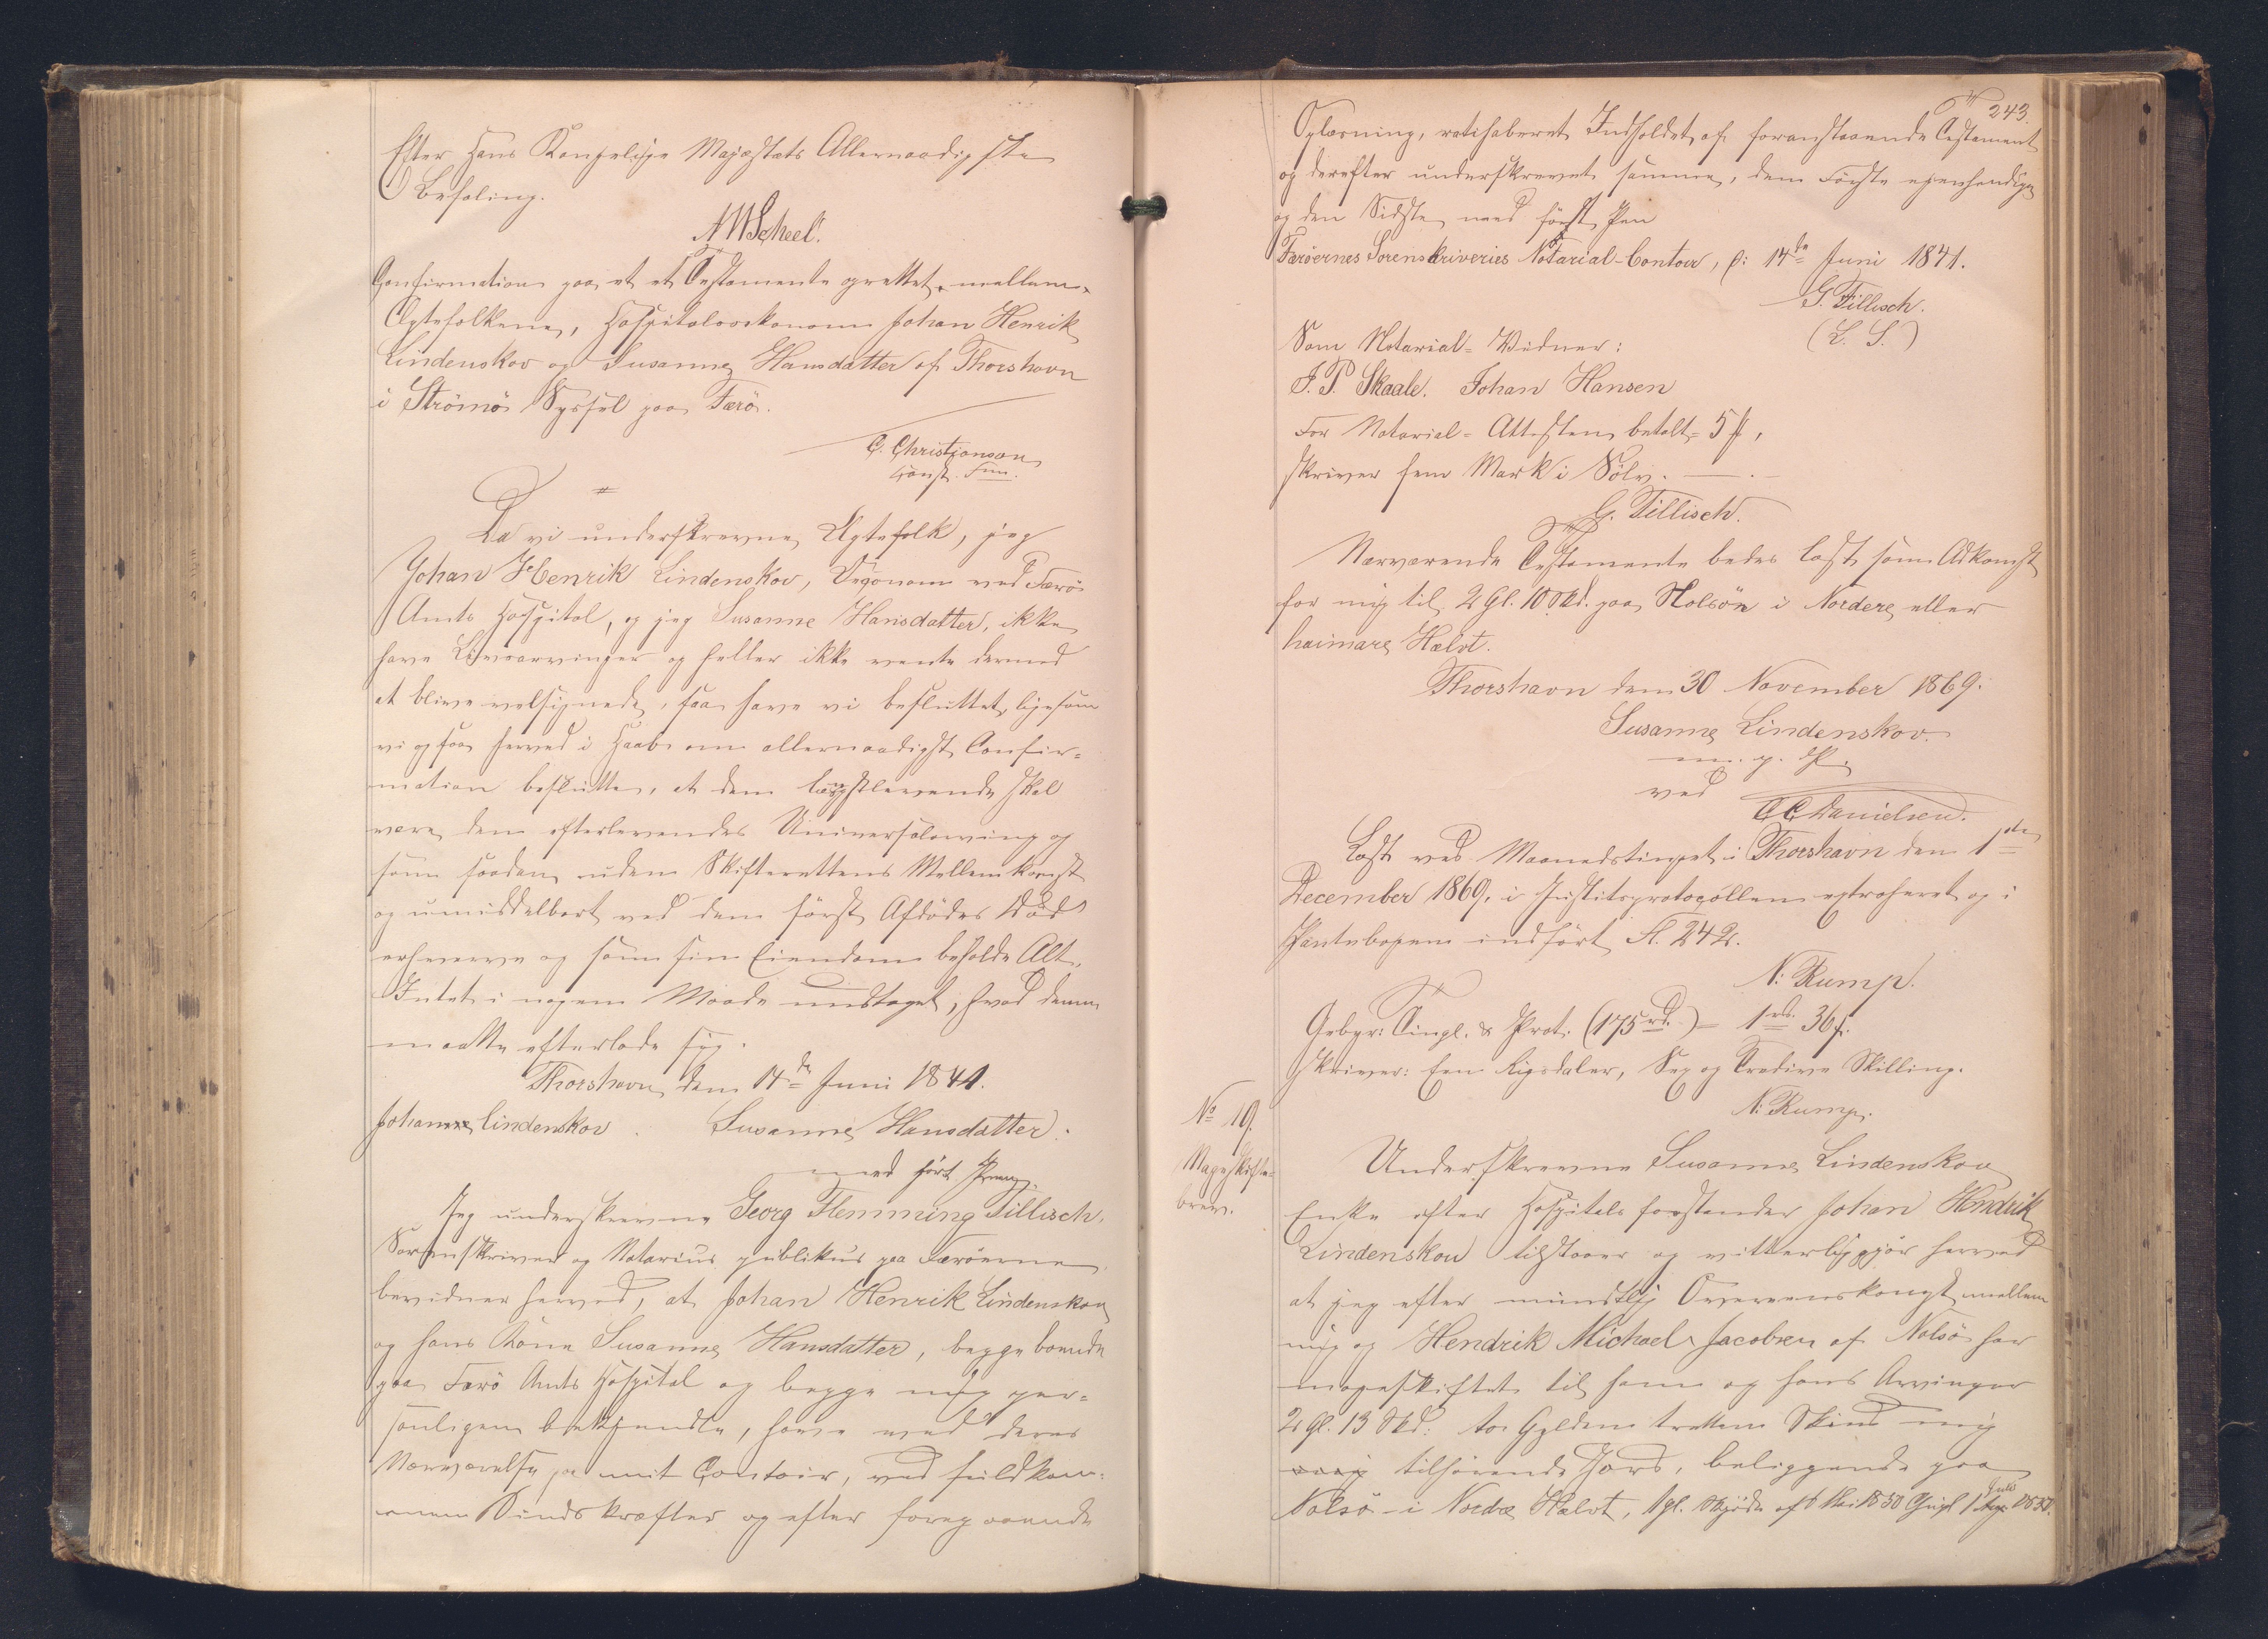 Efter Hans Kongelige Majestæts Allernaadigste
Befaling.
A W Scheel.
Confirmation paa et et Testamente oprettet mellem
Ægtefolkene, Hospitalsoekonom Johan Henrik
Lindenskov og Susanne Hansdatter af Thorshavn
i Strömö Syssel paa Færö.
C. Christjanson
const. Fm.
Da vi underskrevne Ægtefolk, jeg
Johan Henrik Lindenskov, Oeconom ved Færö
Amts Hospital, og jeg Susanne Hansdatter, ikke
have Livsarvinger og heller ikke vente dermed
at blive velsignede, saa have vi besluttet, ligesom
vi ogsaa herved i Haab om allernaadigst Confir-
mation beslutte, at den længstlevende skal
være den efterlevendes Universalarving og
som saadan uden Skifterettens Mellemkomst
og umiddelbart ved den först Afdödes Död
erhverve og som sin Eiendom beholde Alt,
Intet i nogen Maade undtaget, hvad denne
maatte efterlade sig.
Thorshavn den 14de Juni 1841.
Johan Lindenskov. Susanne Hansdatter.
med fört Pen.
Jeg underskrevne Georg Flemming Tillisch,
Sorenskriver og Notarius publikus paa Færöerne,
bevidner herved, at Johan Henrik Lindenskov
og hans Kone Susanne Hansdatter, begge boende
paa Færö Amts Hospital og begge mig per-
sonligen bekjendte, have ved deres
Nærværelse paa mit Contoir, ved fuldkom-
men Sindskræfter og efter foregaaende
243.
Oplæsning, ratihaberet Indholdet af foranstaaende Testament
og derefter underskrevet samme, den Förste egenhændig
og den Sidste med fört Pen
Færöernes Sorenskriveries Notarial-Contoir, d: 14de Juni 1841.
G. Tillisch.
(L. S.)
Som Notarial-Vidner:
J. P. Skaale. Johan Hansen
For Notarial-Attesten betalt 5 ,
skriver fem Mark i Sölv.
G. Tillisch.
Nærværende Testamente bedes læst som Adkomst
for mig til 2 Gl. 10 Skd. paa Nolsön i Nordere eller
heimare Halvt.
Thorshavn den 30 November 1869.
Susanne Lindenskov
m. f. P.
ved
C C Danielsen.
Læst ved Maanedstinget i Thorshavn den 1ste
December 1869, i Justitsprotocollen extraheret og i
Pantebogen indfört Fl. 242.
N: Rump.
Gebyr: Tingl. & Prot. (175 rd.) = 1 rd. 36 s.
skriver: Een Rigsdaler, Sex og Tredive Skilling.
N: Rump.
No 19.
Mageskifte-
brev.
Underskrevne Susanne Lindenskov
Enke efter Hospitalsforstander Johan Hendrik
Lindenskov tilstaaer og vitterliggjör herved
at jeg efter mundtlig Overeenskomst mellem
mig og Hendrik Michael Jacobsen af Nolsö har
mageskiftet til ham og hans Arvinger
2 Gl. 13 Skd: to Gylden tretten Skind mig
tilhörende Jord, beliggende paa
Nolsö i Nordre Halvt, 1 gl. Skjöde af 6 Mai 1830 Thingl 1 Juli 1830.